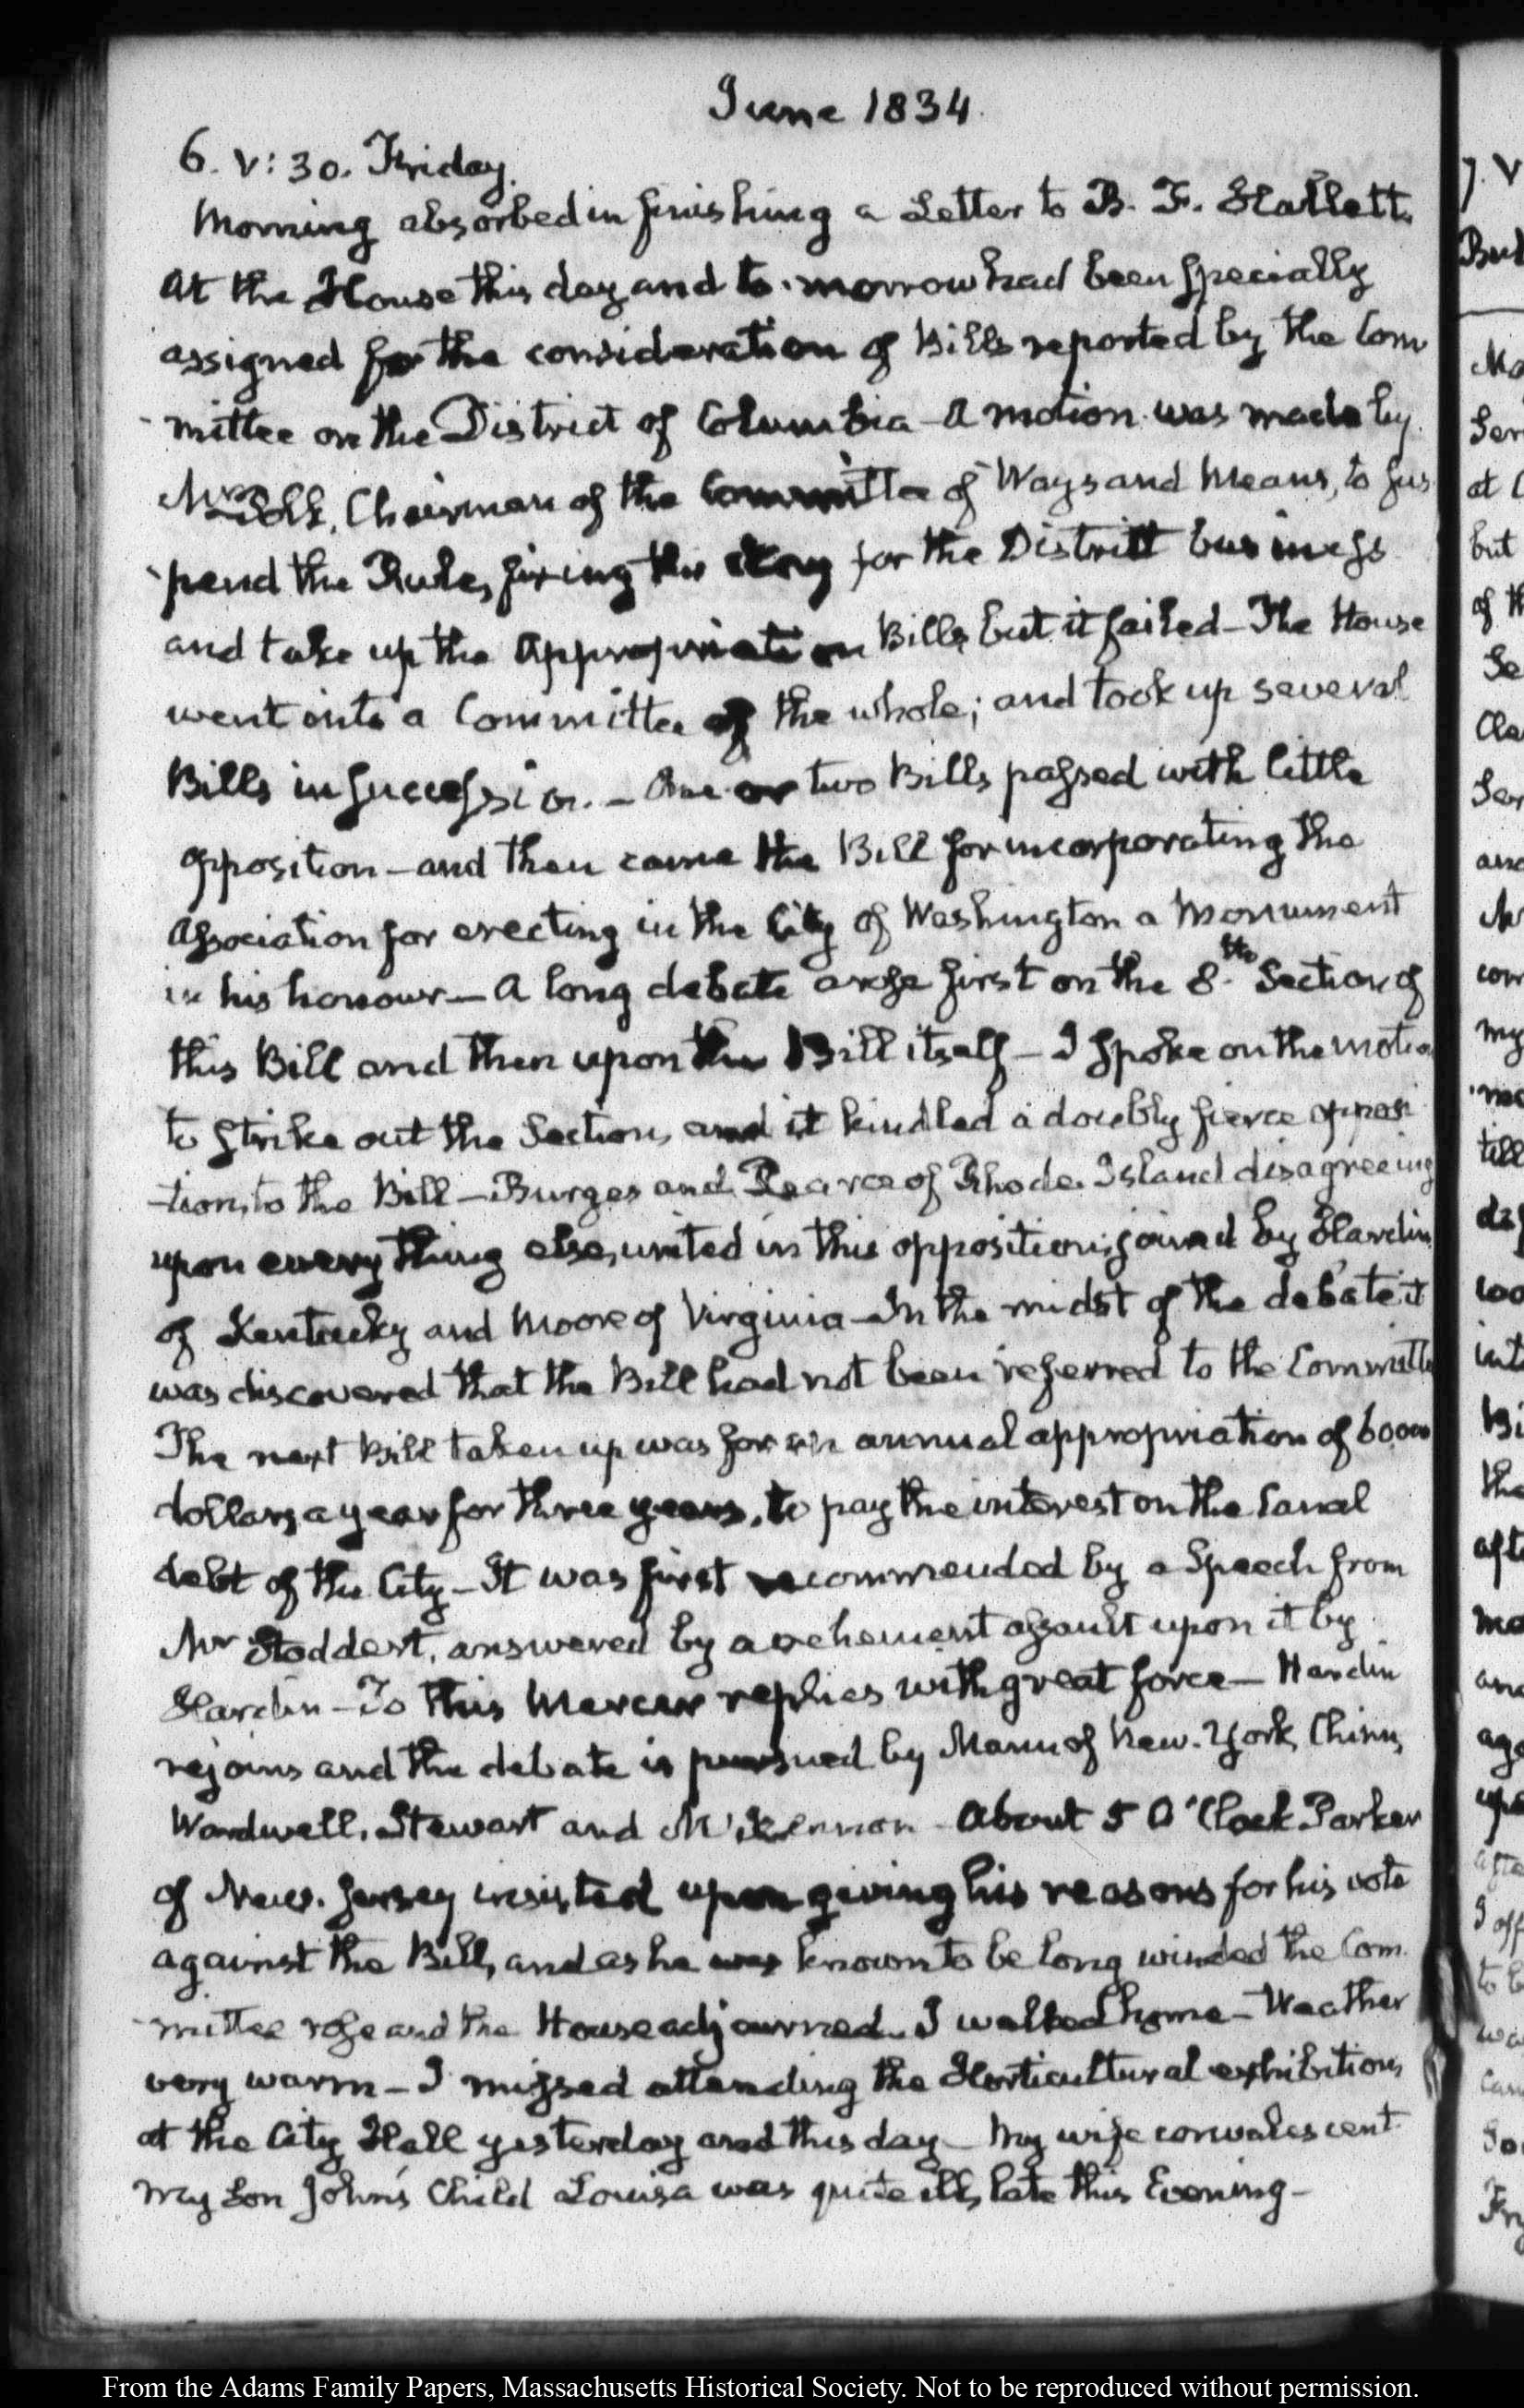 June 1834.
6. V: 30. Friday.
Morning absorbed in finishing a Letter to B. F. Hallett.
At the House this day and to-morrow had been specially
assigned for the consideration of Bills reported by the Com
mittee on the District of Columbia - A motion was made by
Mr Polk, Chairman of the Committee of Ways and Means, to sus
pend the Rule, fixing this day for the District business
and take up the Appropriation Bills but it failed - The House
went into a Committee of the whole; and took up several
Bills in succession. - One or two Bills passed with little
opposition - and then came the Bill for incorporating the
Association for erecting in the City of Washington a Monument
in his honour - A long debate arose first on the 8.th Section of
this Bill and then upon the Bill itself - I spoke on the motion
to strike out the Section, and it kindled a doubly fierce opposi
-tion, to the Bill - Burges and Pearce of Rhode Island disagreeing
upon every thing else, united in this opposition; joined by Hardin
of Kentucky and Moore of Virginia - In the midst of the debate it
was discovered that the Bill had not been referred to the Committee
The next Bill taken up was for an annual appropriation of 60000
dollars a year for three years, to pay the interest on the Canal
debt of the City - It was first recommended by a Speech from
Mr Stoddert, answered by a vehement assault upon it by
Hardin - To this Mercer replies with great force - Hardin
rejoins and the debate is pursued by Mann of New-York, Chinn,
Wardwell, Stewart and McKennan - About 5 O'Clock Parker
of New-Jersey insisted upon giving his reasons for his vote
against the Bill, and as he was known to be long winded the Com
mittee rose and the House adjourned. I walked home - Weather
very warm - I missed attending the Horticultural exhibition,
at the City Hall yesterday and this day - My wife convalescent
My Son John's Child Louisa was quite ill, late this Evening -
7. V
at
but
of th
and
my
till
From the Adams Family Papers, Massachusetts Historical Society. Not to be reproduced without permission.